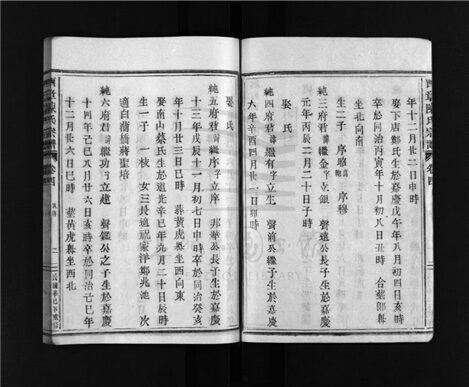 年十二月二十二日申時
娶下店鄭氏生於嘉慶戊午年八月初四日亥時
卒於同治丙寅年十月初八日丑時
合葬
坐北向南
生二子
序
序穆
純三府君
諱繼金字
銀
聲遠公長子生於嘉慶
元年丙辰二月二十日子時
娶氏
純四府君
諱繼有字立生
聲前公繼子生於嘉慶
六年辛酉四月廿一日卯時
娶氏
純五府君
諱繼
序字立庠
邦華公長子生於嘉慶
十三年戊辰十一月初七日申時卒於同治癸亥
年十月廿三日巳時
葬黃虎
坐西向東
娶南山蔡氏生於道光辛巳年九月二十日辰時
生一子
一枝
女三長適
家洋鄭兆池
次
適白
蕭聖培
純六府君
諱繼功字立趣
聲鑑公之子生於嘉慶
十四年己巳八月廿六日亥時卒於同治己巳年
十二月廿六日巳時
葬黃虎
坐西北
陳氏宗譜
卷四
二